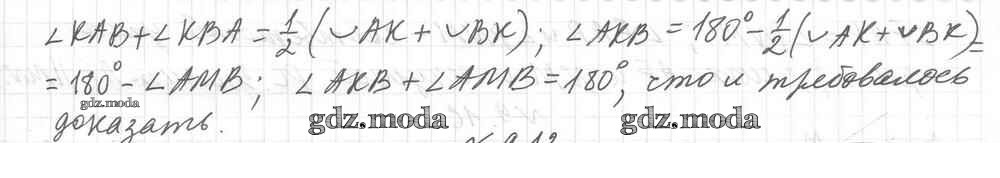 ∠KAB+∠KBA = 1/2 (◡AK + ◡BK); ∠AKB = 180° - 1/2(◡AK+◡BK)=
= 180° - ∠AMB; ∠AKB + ∠AMB = 180°, что и требовалось
gdz.moda
доказать.
gdz.moda gdz.moda